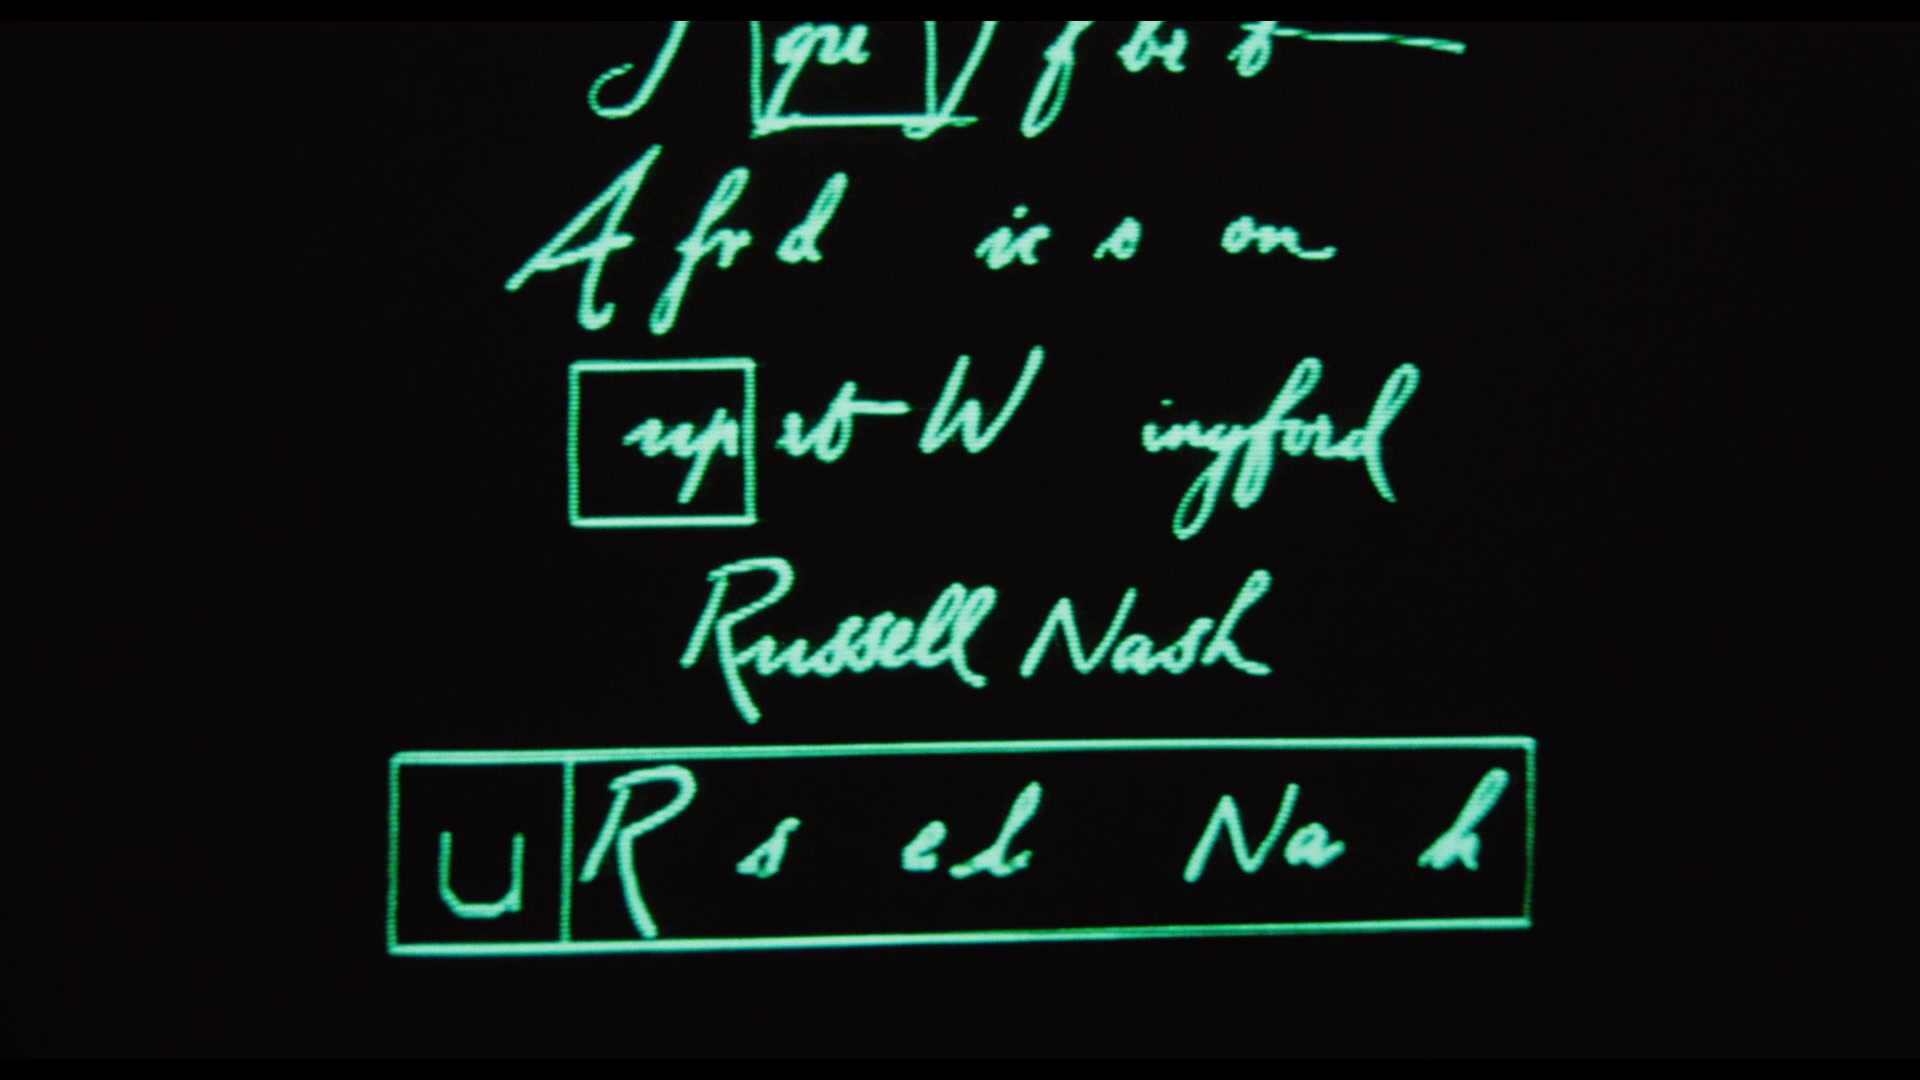 J gu f be t
A fr d ic s on
up et W ingford
Russell Nash
U R s e l Na h